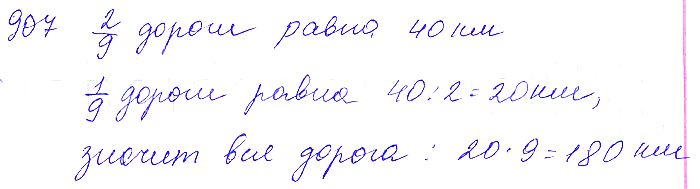 907 2/9 дороги равна 40 км
1/9 дороги равна 40:2=20 км,
значит вся дорога: 20·9=180 км